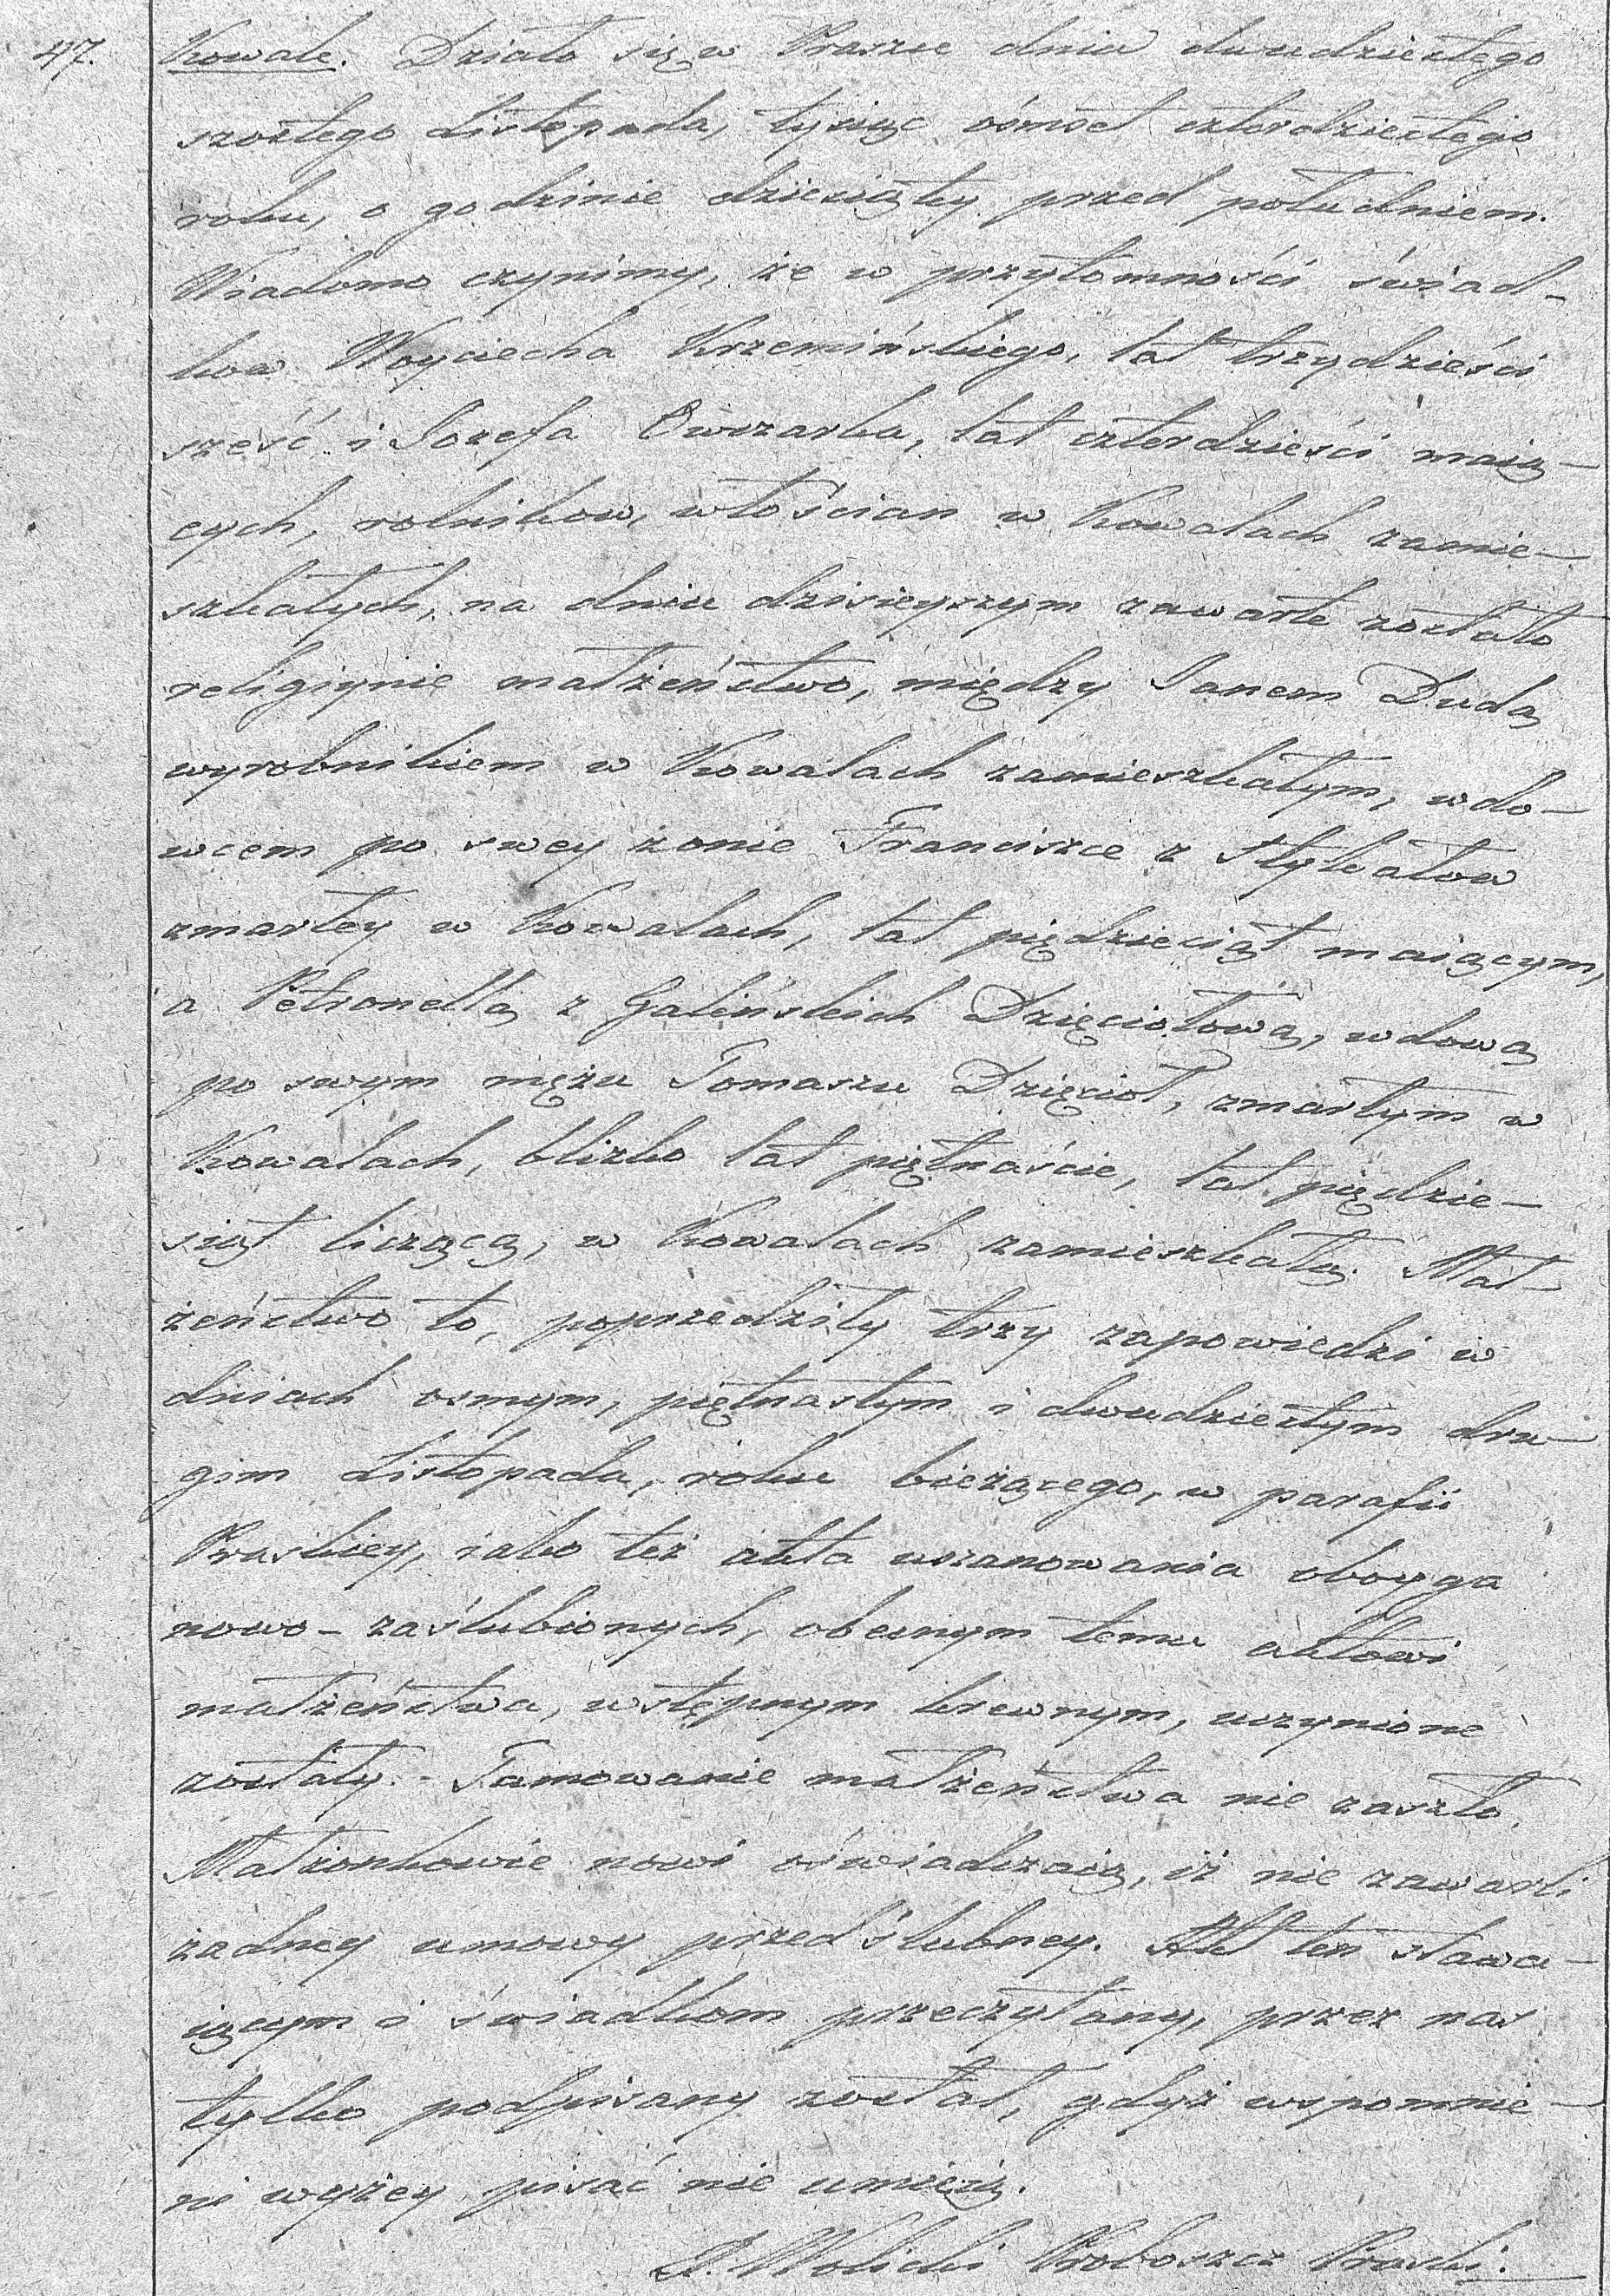 47.
Kowale. Działo się w Praszce dnia dwudziestego
szostego Listopada, tysiąc ośmset czterdziestego
roku, o godzinie dziesiąty przed południem.
Wiadomo czynimy, że w przytomności świad-
kow Woyciecha Krzemińskiego, lat trzydzieści
sześć i Jozefa Owczarka, lat czterdzieści maią-
cych, rolnikow, włościan w Kowalach zamie-
szkałych, na dniu dzisieyszym zawarte zostało
religiynie małżeństwo, między Janem Dudą
wyrobnikiem w Kowalach zamieszkałym, wdo-
wcem po swey żonie Franciszce z
zmarłey w Kowalach, lat pięдziesiąt maiącym,
a Petronellą z Galińskich Dzięciołową, wdową
po swym mężu Tomaszu Dzięcioł, zmarłym w
Kowalach, blizko lat piętnaście, lat piędzie-
siąt liczącą, w Kowalach zamieszkałą. Mał-
żeństwo to, poprzedziły trzy zapowiedzi w
dniach osmym, piętnastym i dwudziestym dru-
gim Listopada, roku bieżącego, w parafii
Praskiey, iako też akta uszanowania oboyga
nowo-zaślubionych, obecnym temu aktowi
małżeństwa, wstępnym krewnym, uczynione
zostały. - Tamowanie małżeństwa nie zaszło.
Małżonkowie nowi oświadczaią, iż nie zawarli
żadney umowy przedślubney. Akt ten stawa-
iącym i świadkom przeczytany, przez nas
tylko podpisany został, gdyż wspomnie-
ni wyżey pisać nie umieią.
Proboszcz Praski.